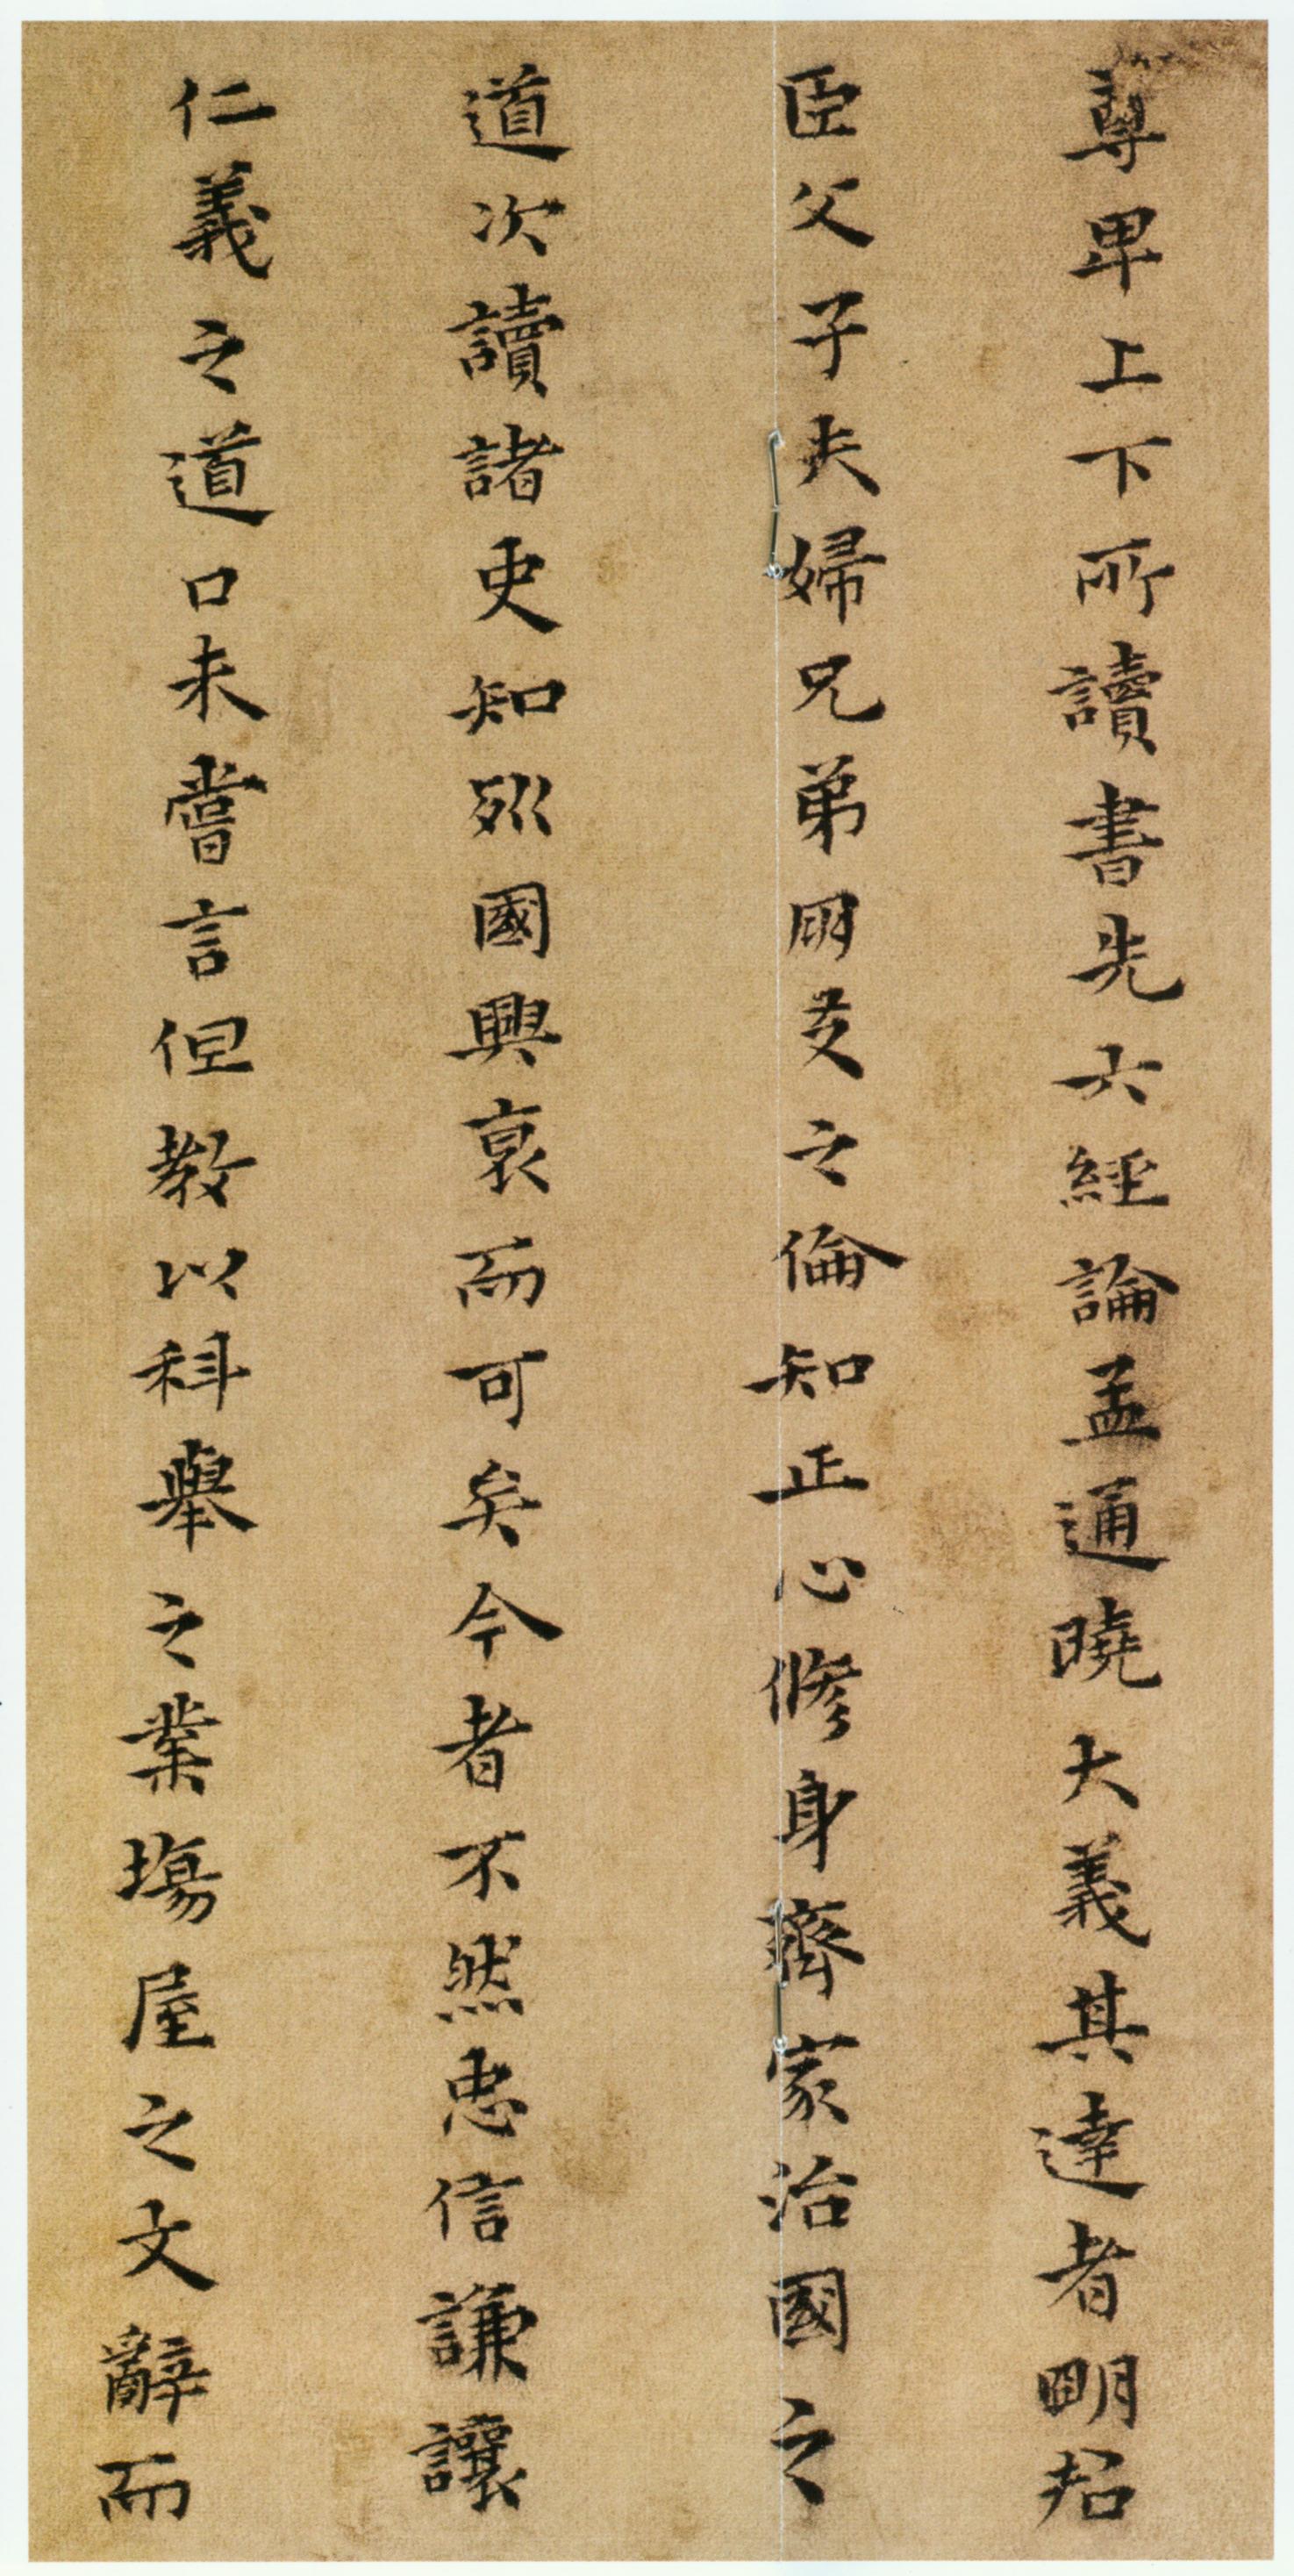 尊卑上下所讀書先六經論孟通曉大義其達者明君
臣父子夫婦兄弟朋友之倫知正心修身齊家治國之
道次讀諸史知歷代國興衰而可矣今者不然忠信謙讓
仁義之道口未嘗言但教以科舉之業場屋之文辭而